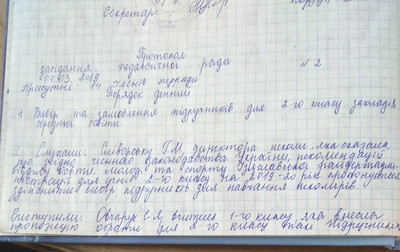 Секретар:
Протокол
засідання педагогічної ради №2
04.03.2019
Присутні: 14 членів педради
Порядок денний
1. Вибір та замовлення підручників для 2-го класу закладів
середньої освіти.
Слухали: Г.М. директора школи яка сказала,
що згідно чинного законодавства України, рекомендацій
відділу освіти, молоді та спорту
для учнів 2-го класу на 2019-20 рік пропонується
здійснити вибір підручників для навчання школярів.
Виступили: вчитель 1-го класу, яка внесла
пропозицію обрати для 2-го класу такі підручники